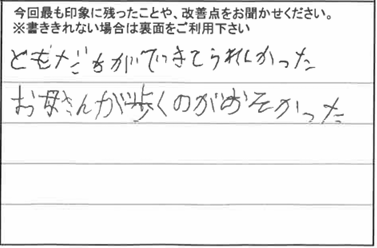 今回最も印象に残ったことや、改善点をお聞かせください。
※書ききれない場合は裏面をご利用下さい
ともだちができてうれしかった
お母さんが歩くのがおそかった